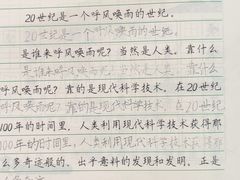 20世纪是一个呼风唤雨的世纪。
20世纪是一个呼风唤雨的世纪。
是谁来呼风唤雨呢？当然是人类。靠什么
是谁来呼风唤雨呢？当然是人类。靠什么
呼风唤雨呢？靠的是现代科学技术。在20世
呼风唤雨呢？靠的是现代科学技术。在20世
100年的时间里，人类利用现代科学技术获得那
100年的时间里，人类利用现代科学技术获得那
么多奇迹般的、出乎意料的发现和发明。正是